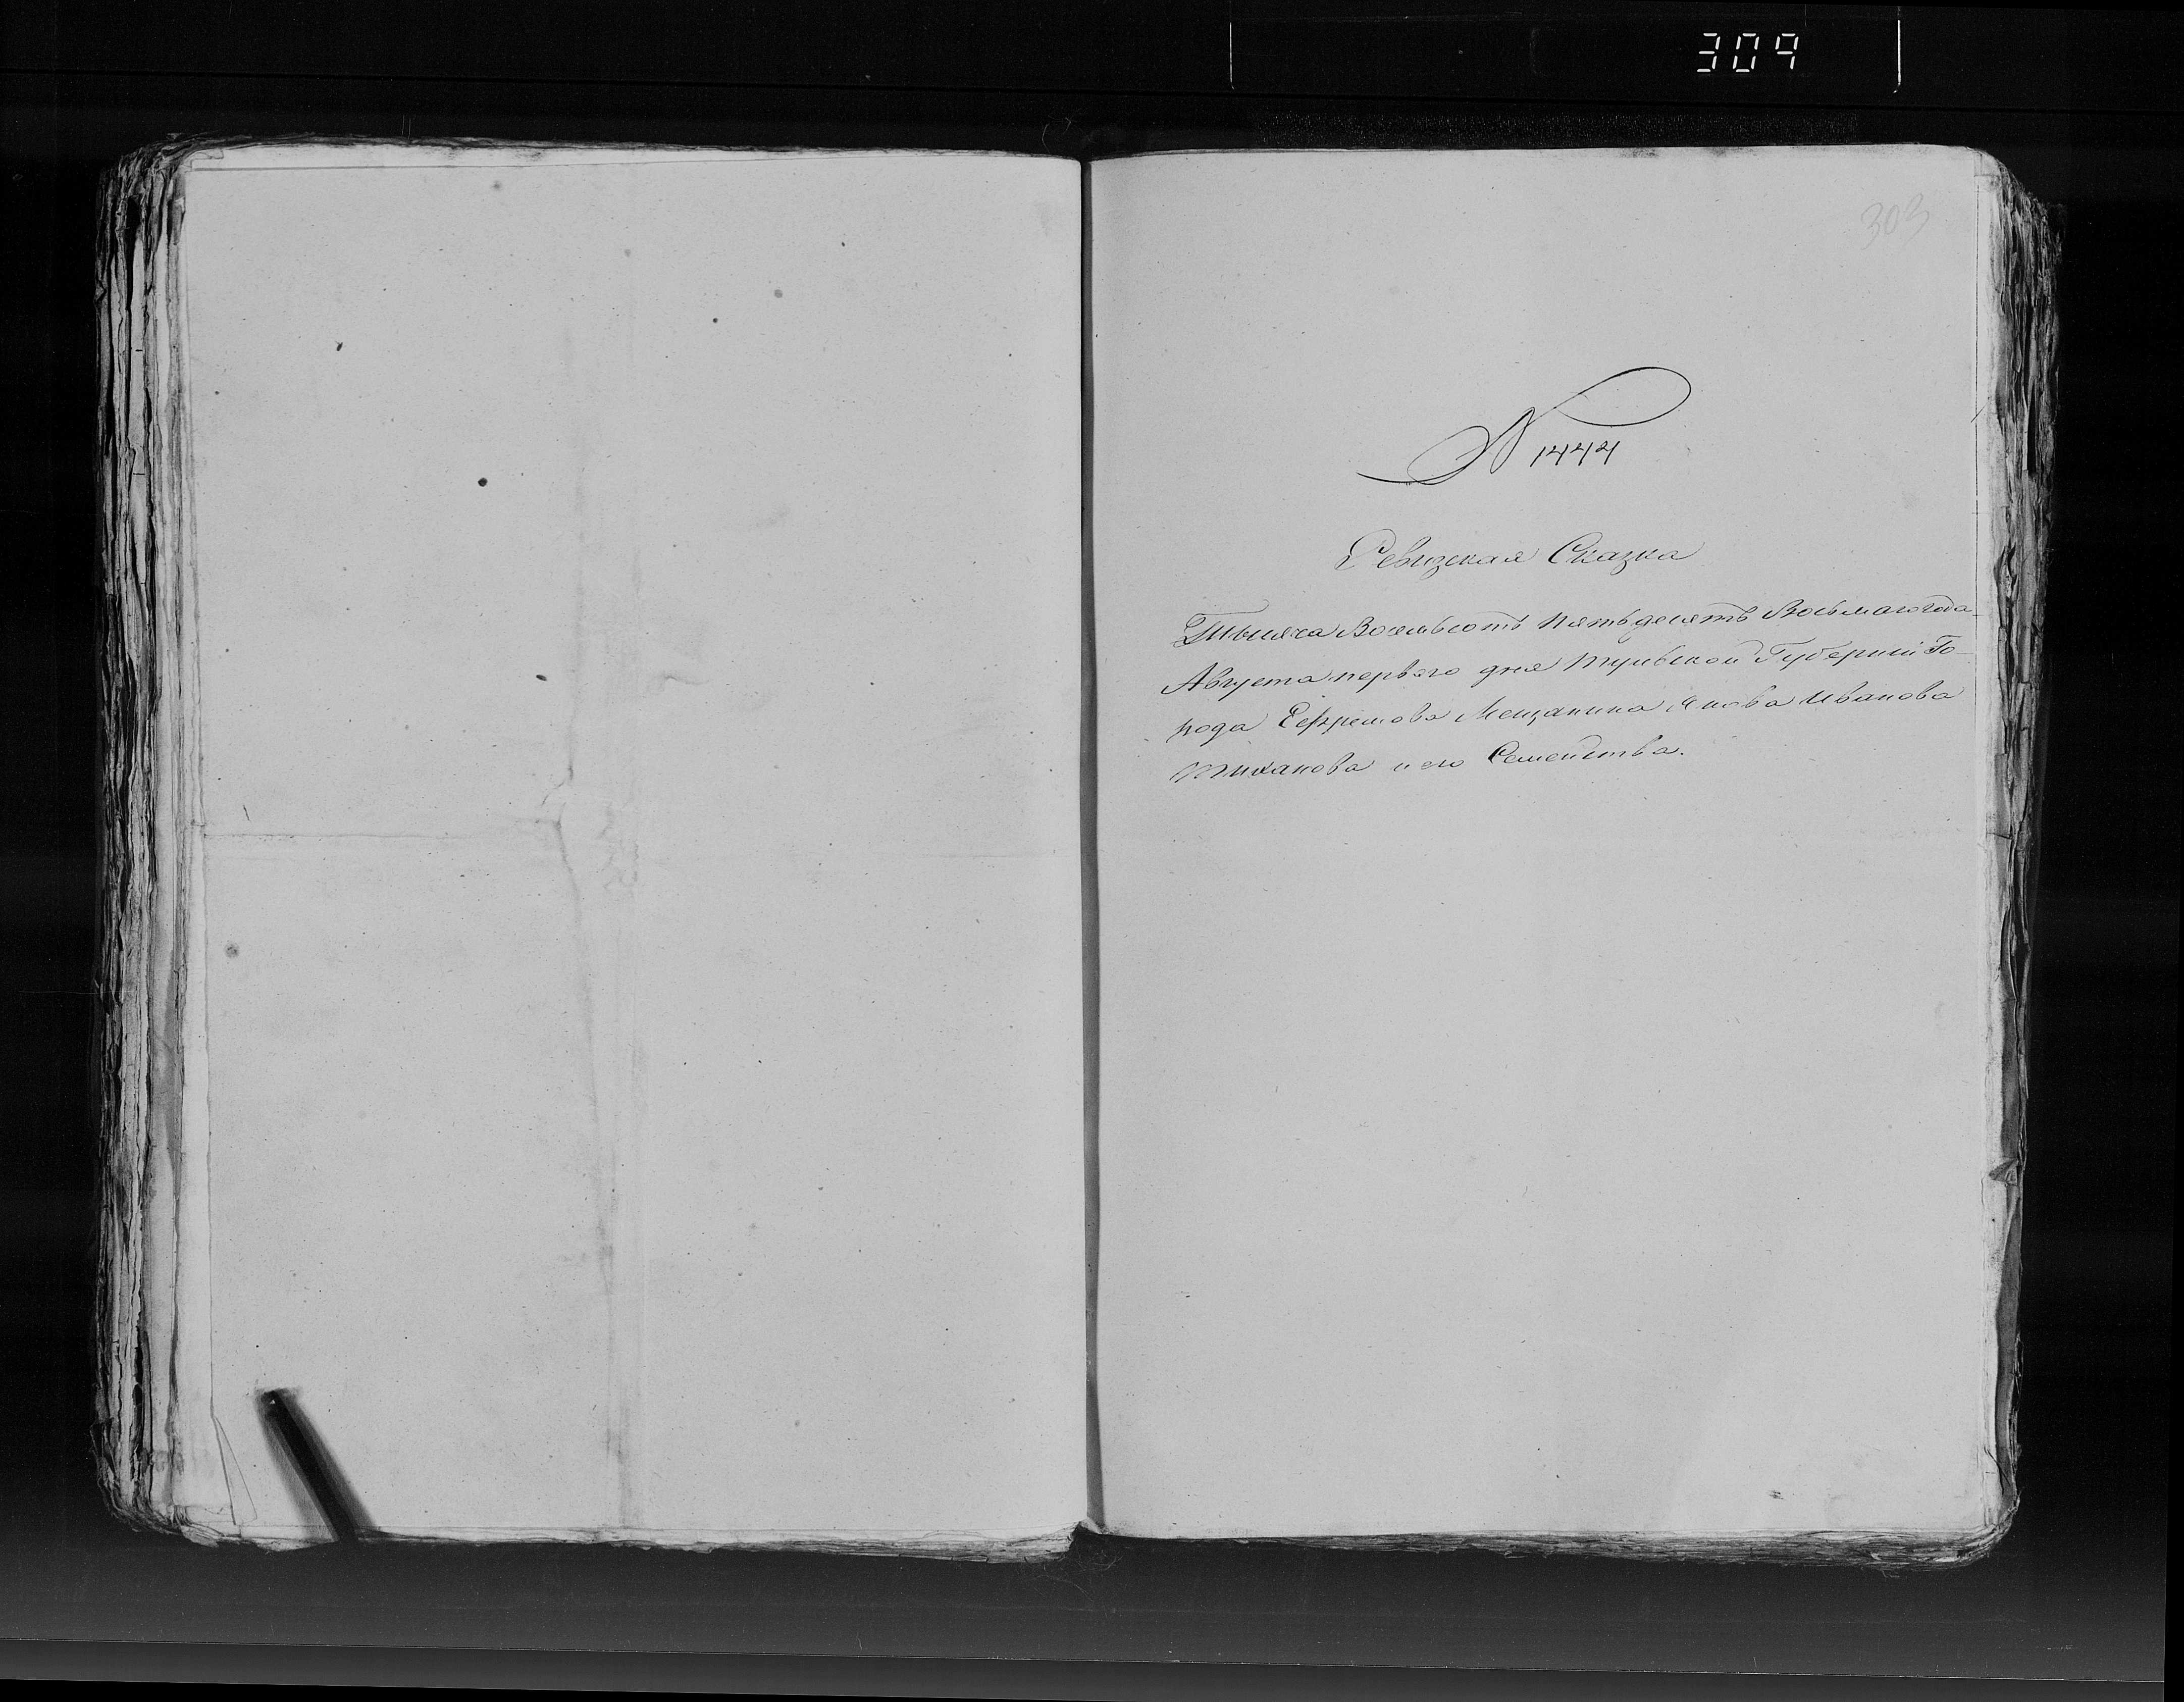 309
303
N 1444
Ревизская Сказка
Тысяча Восемьсотъ Пятьдесятъ Восьмаго года
Августа перваго дня Тульской Губернiи Го-
рода Ефремова Мещанина Якова Иванова
Тиханова и его Семейства.